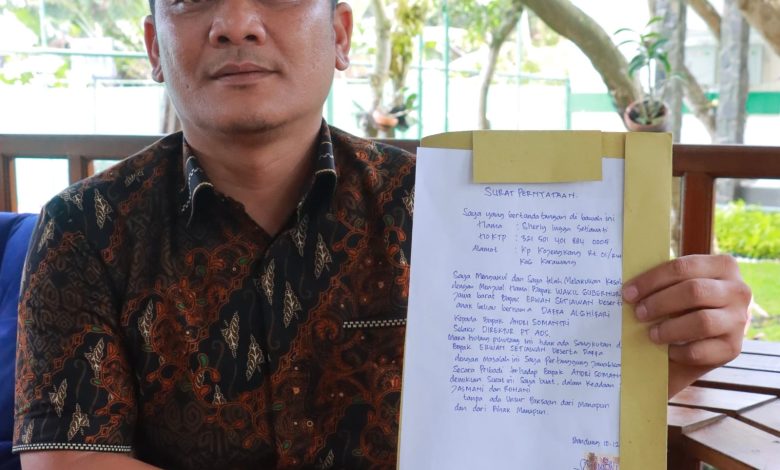 SURAT PERNYATAAN.
Saya yang bertanda tangan di bawah ini
Nama : Sherly Ingga Setiawati
No KTP : 321 501 401 884 0005
Alamat : Kp Kojengkang Rt 01/
Kab Karawang
Saya Mengakui dan Saya telah Melakukan
dengan Menjual Nama Bapak WAKIL GUBERNUR
Jawa barat Bapak ERWAN SETIAWAN Beserta
anak beliau bernama DAFFA ALGHIFARI
Kepada Bapak ANDRI SOMANTRI
Selaku DIREKTUR PT ADS.
Maka hutang piutang ini tidak ada Sangkutan
Bapak ERWAN SETIAWAN Beserta Daffa
dengan Masalah ini Saya Pertanggung Jawabkan
Secara Pribadi terhadap Bapak ANDRI
demikian Surat ini Saya buat, dalam Keadaan
JASMANI dan ROHANI
tanpa ada Unsur Paksaan dari Manapun
dan dari Pihak Manapun.
Bandung, 10-12